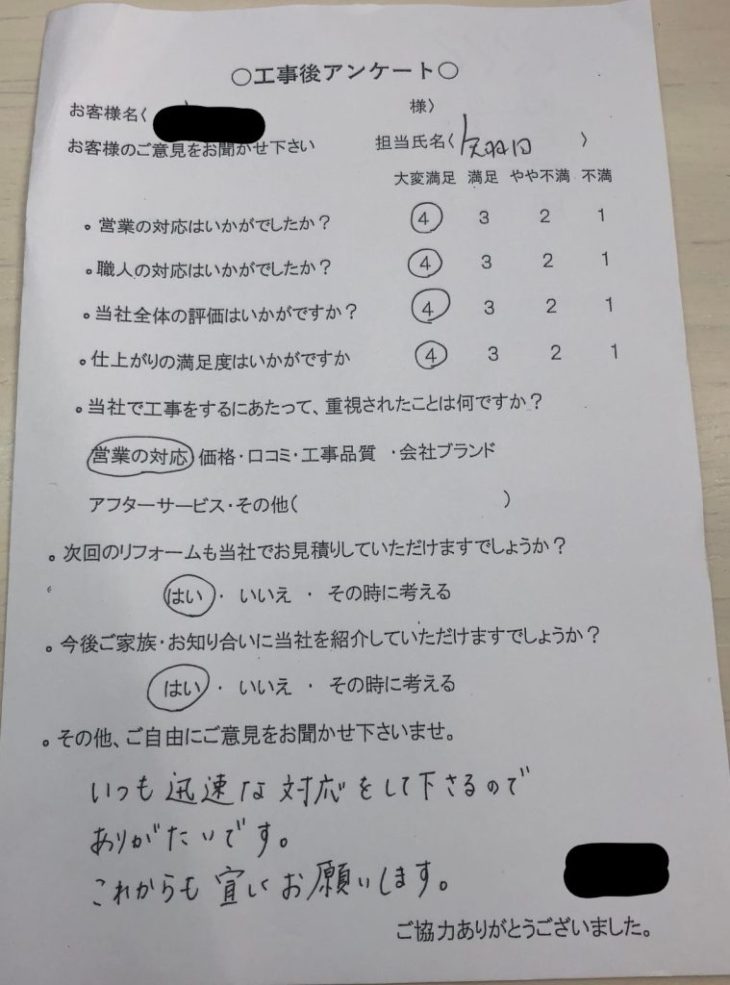 ○工事後アンケート○
お客様名( 様)
お客様のご意見をお聞かせ下さい 担当氏名( )
大変満足 満足 やや不満 不満
。営業の対応はいかがでしたか？ 4 3 2 1
。職人の対応はいかがでしたか？ 4 3 2 1
。当社全体の評価はいかがですか？ 4 3 2 1
。仕上がりの満足度はいかがですか 4 3 2 1
。当社で工事をするにあたって、重視されたことは何ですか？
営業の対応 価格・口コミ・工事品質 ・会社ブランド
アフターサービス・その他( )
。次回のリフォームも当社でお見積りしていただけますでしょうか？
はい ・ いいえ ・ その時に考える
。今後ご家族・お知り合いに当社を紹介していただけますでしょうか？
はい ・ いいえ ・ その時に考える
。その他、ご自由にご意見をお聞かせ下さいませ。
いつも迅速な対応をして下さるので
ありがたいです。
これからも宜しくお願いします。
ご協力ありがとうございました。